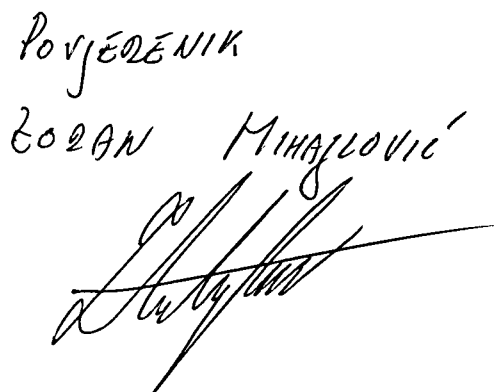 POVJERENIK
ZORAN MIHAJLOVIĆ